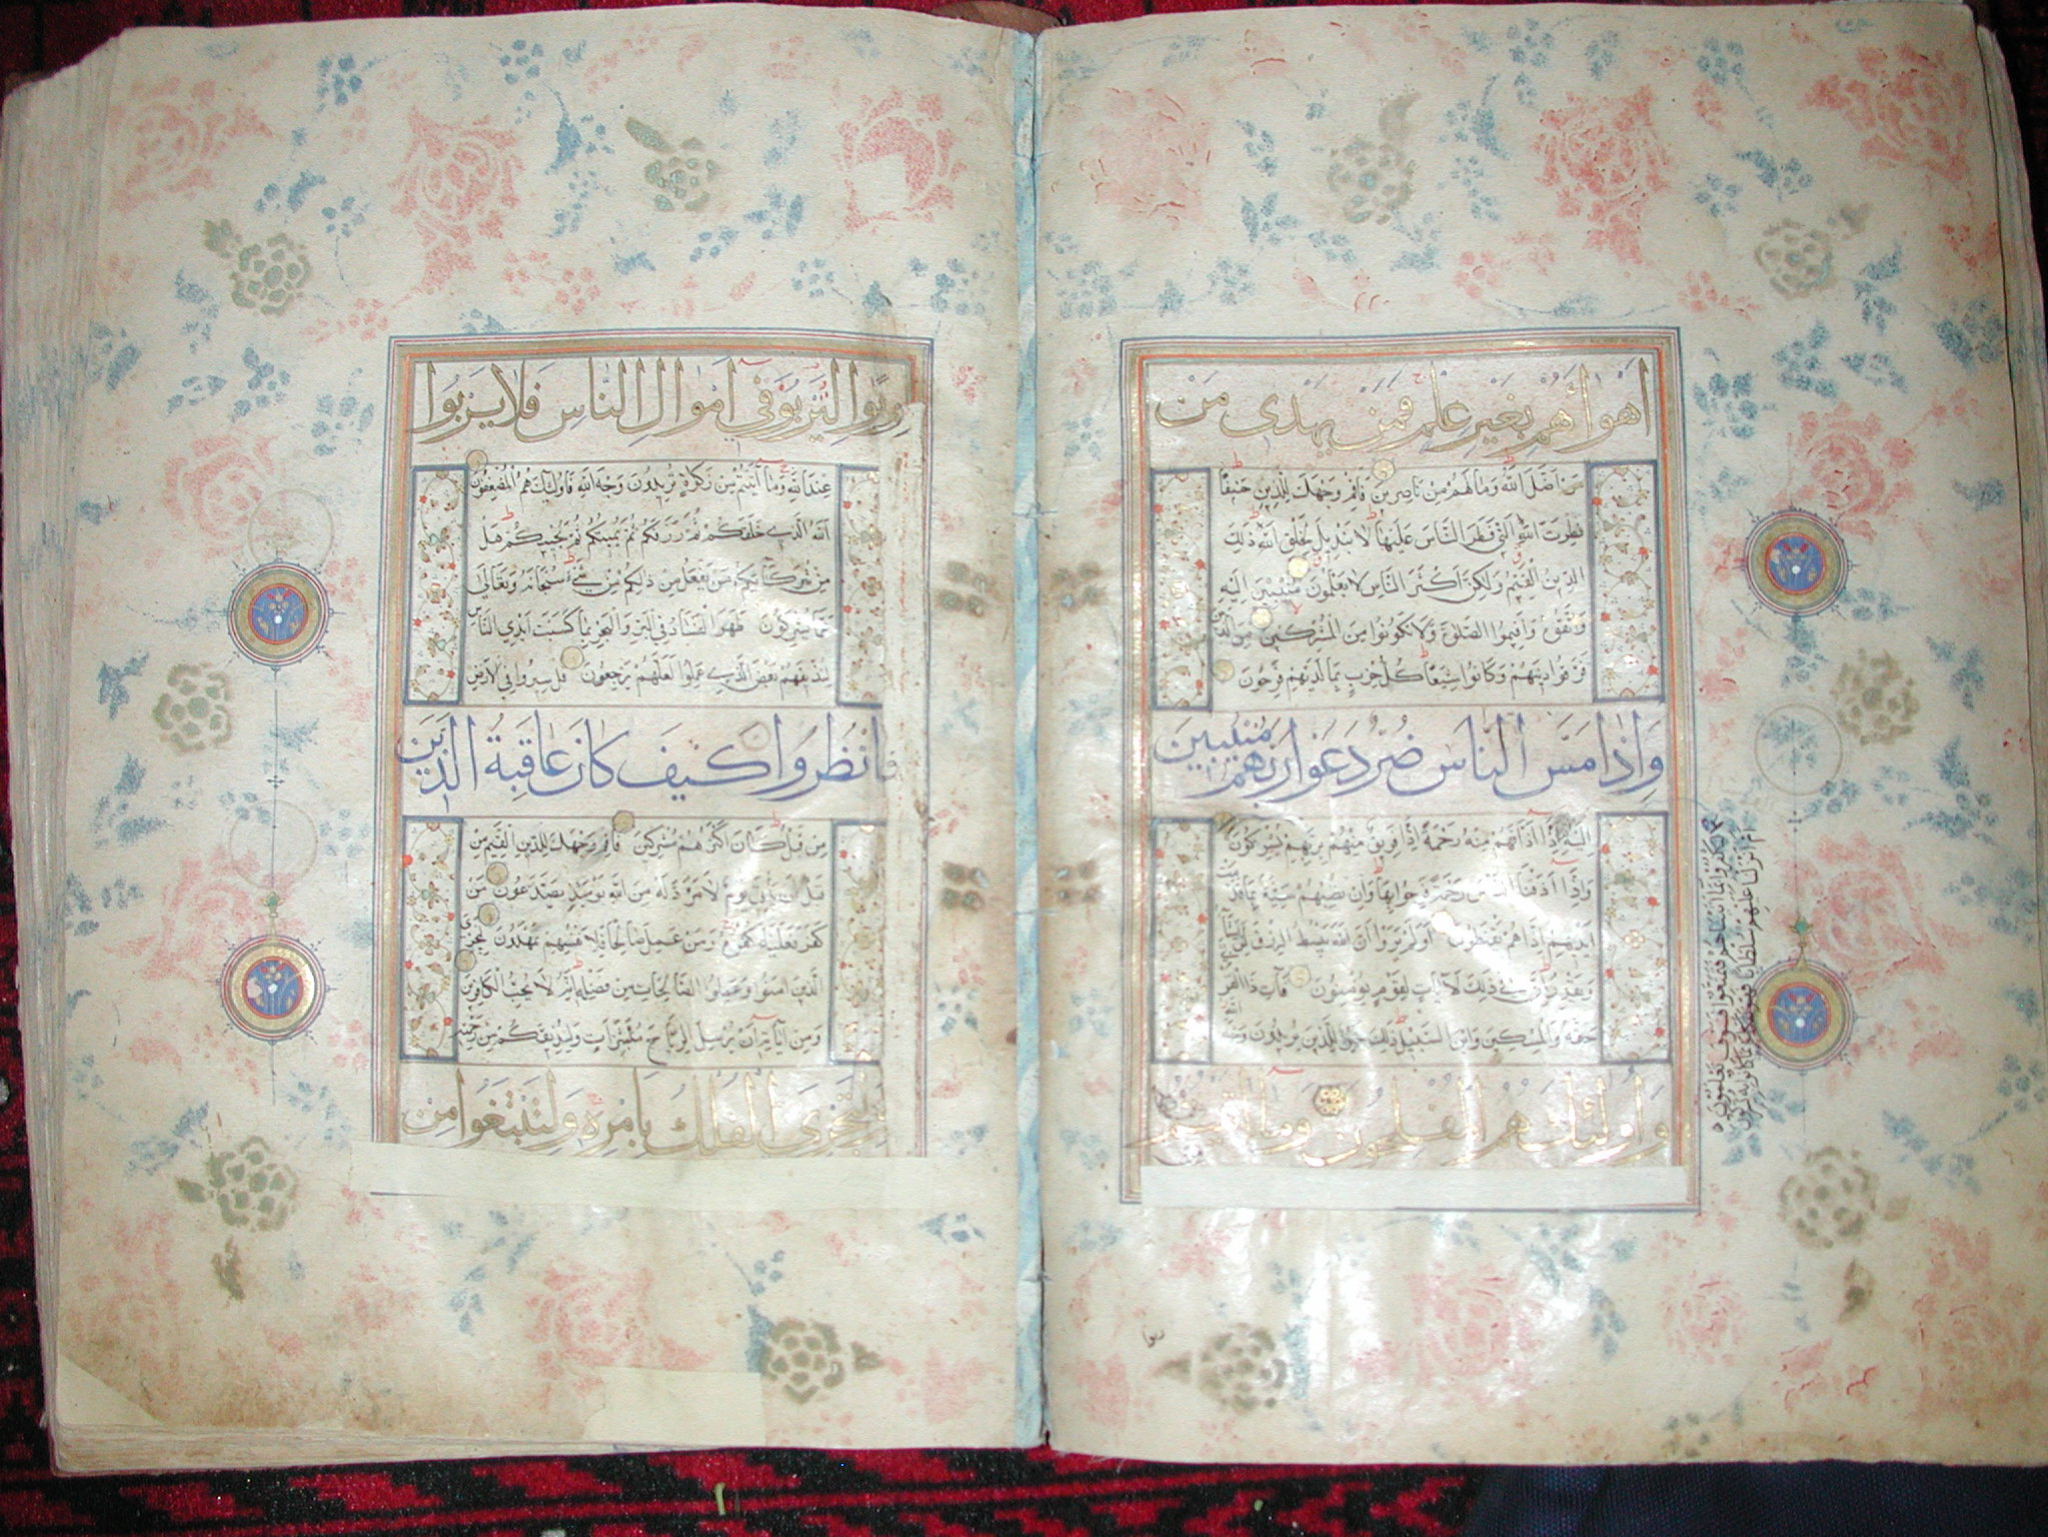 اهواءهم بغير علم فمن يهدى من
من اضل الله وما لهم من ناصرين فاقم وجهك للدين حنيفا
فطرت الله التي فطر الناس عليها لا تبديل لخلق الله ذلك
الدين القيم ولكن اكثر الناس لا يعلمون منيبين اليه
واتقوه واقيموا الصلوة ولا تكونوا من المشركين من الذين
فرقوا دينهم وكانوا شيعا كل حزب بما لديهم فرحون
واذا مس الناس ضر دعوا ربهم منيبين
اليه اذا اذاقهم منه رحمة اذا فريق منهم بربهم يشركون
واذا اذقنا الناس رحمة فرحوا بها وان تصبهم سيئة بما قدمت
ايديهم اذا هم يقنطون اولم يروا ان الله يبسط الرزق لمن يشاء
ويقدر ان في ذلك لايات لقوم يؤمنون فات ذا القربى
حقه والمسكين وابن السبيل ذلك خير للذين يريدون وجه الله
واولئك هم المفلحون وما اتيتم من
ليكفروا بما اتيناهم فتمتعوا فسوف تعلمون
ام انزلنا عليهم سلطانا فهو يتكلم بما كانوا به يشركون
ربوا
ربوا ليربوا في اموال الناس فلا يربوا
عند الله وما آتيتم من زكوة تريدون وجه الله فاولئك هم المضعفون
الله الذي خلقكم ثم رزقكم ثم يميتكم ثم يحييكم هل
من شركائكم من يفعل من ذلكم من شيء سبحانه وتعالى
عما يشركون ظهر الفساد في البر والبحر بما كسبت ايدي الناس
ليذيقهم بعض الذي عملوا لعلهم يرجعون قل سيروا في الارض
فانظروا كيف كان عاقبة الذين
من قبل كان اكثرهم مشركين فاقم وجهك للدين القيم من
قبل ان ياتي يوم لا مرد له من الله يومئذ يصدعون من
كفر فعليه كفره ومن عمل صالحا فلانفسهم يمهدون ليجزي
الذين امنوا وعملوا الصالحات من فضله انه لا يحب الكافرين
ومن آياته ان يرسل الرياح مبشرات وليذيقكم من رحمته
ولتجرى الفلك بامره ولتبتغوا من